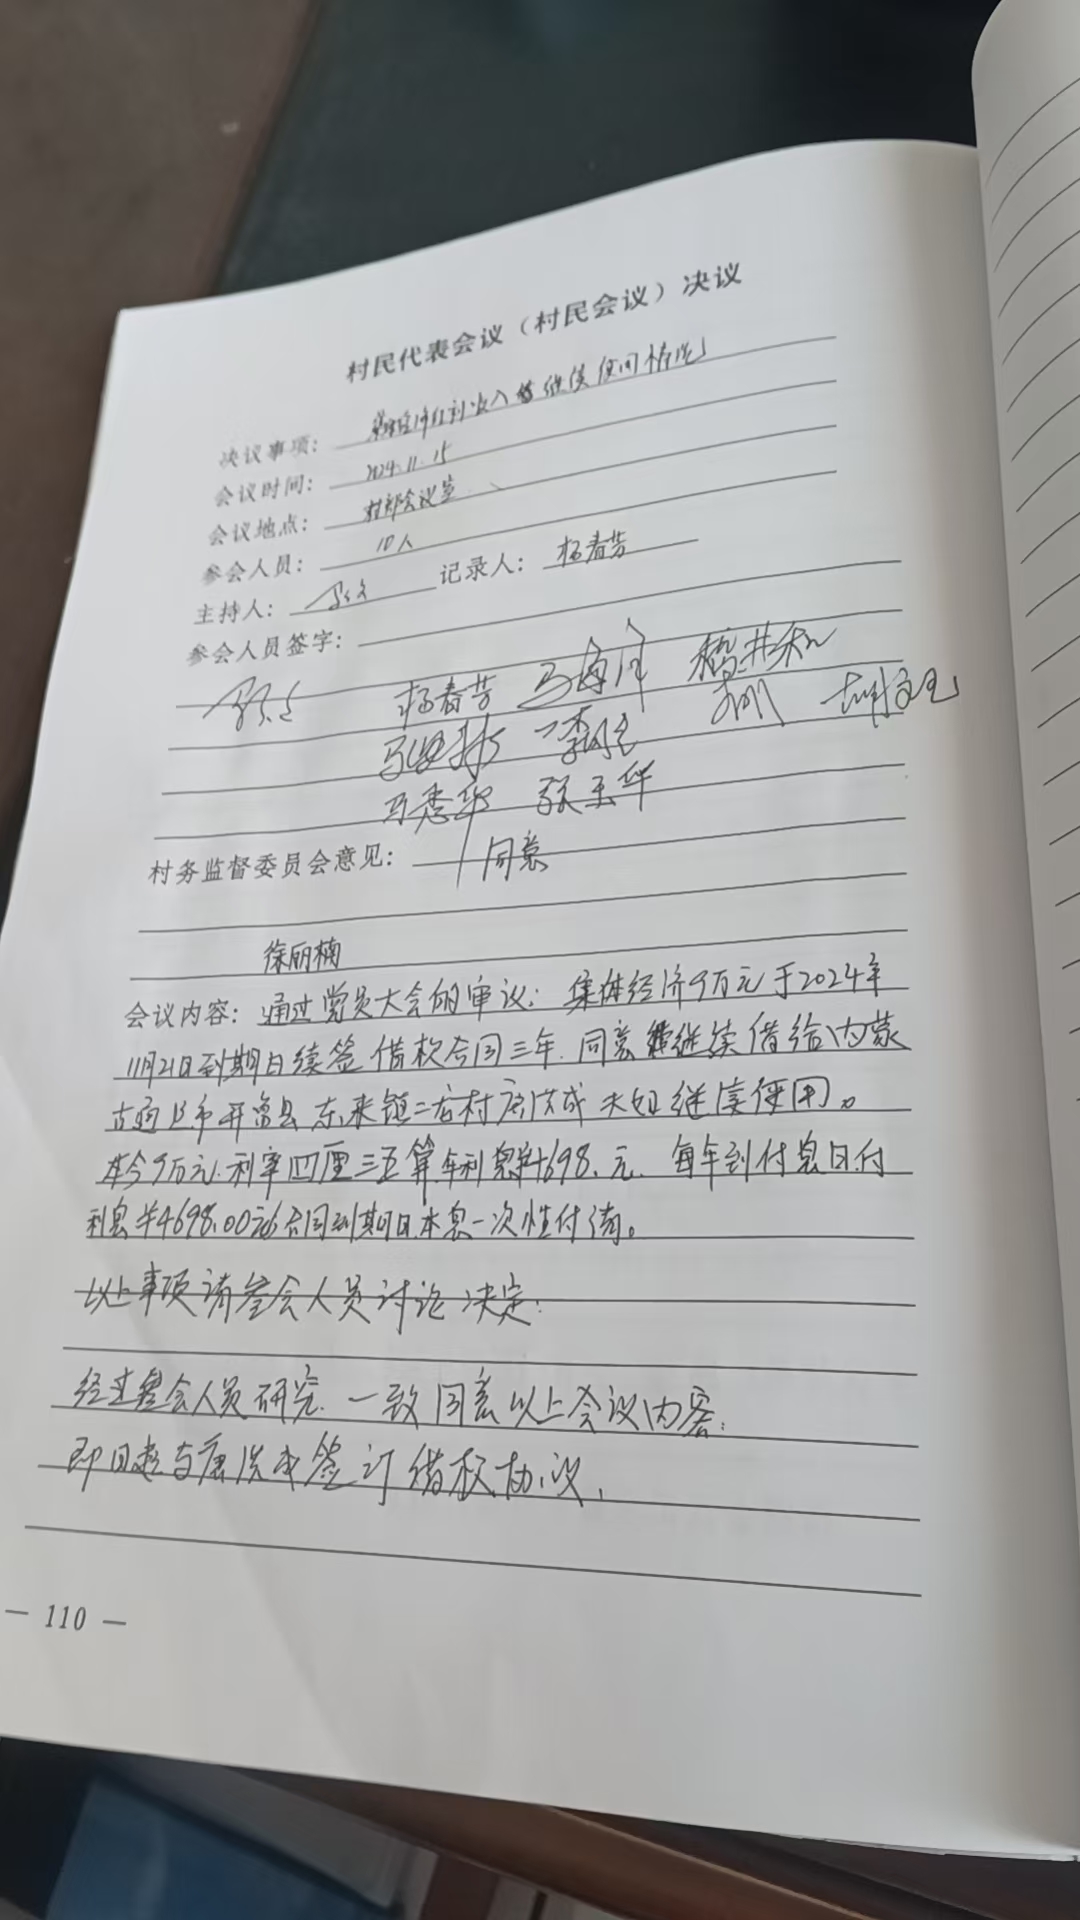 村民代表会议（村民会议）决议
决议事项： 继续使用情况
会议时间： 2024.11.15
会议地点： 村部会议室
参会人员： 10人
主持人： 记录人： 杨春芳
参会人员签字：
杨春芳 马海河
马秀华 张玉华
村务监督委员会意见： 同意
徐丽楠
会议内容：通过党员大会的审议：集体经济9万元于2024年
11月21日到期日续签借款合同三年.同意继续借给内蒙
古通辽市开鲁县东来镇二龙村唐洪成夫妇继续使用。
本金9万元.利率四厘三五算.年利息4698.元.每年到付息日付
利息4698.00元合同到期日本息一次性付清。
以上事项请参会人员讨论决定：
经过参会人员研究.一致同意以上会议内容：
即日起与唐洪成签订借款协议.
— 110 —